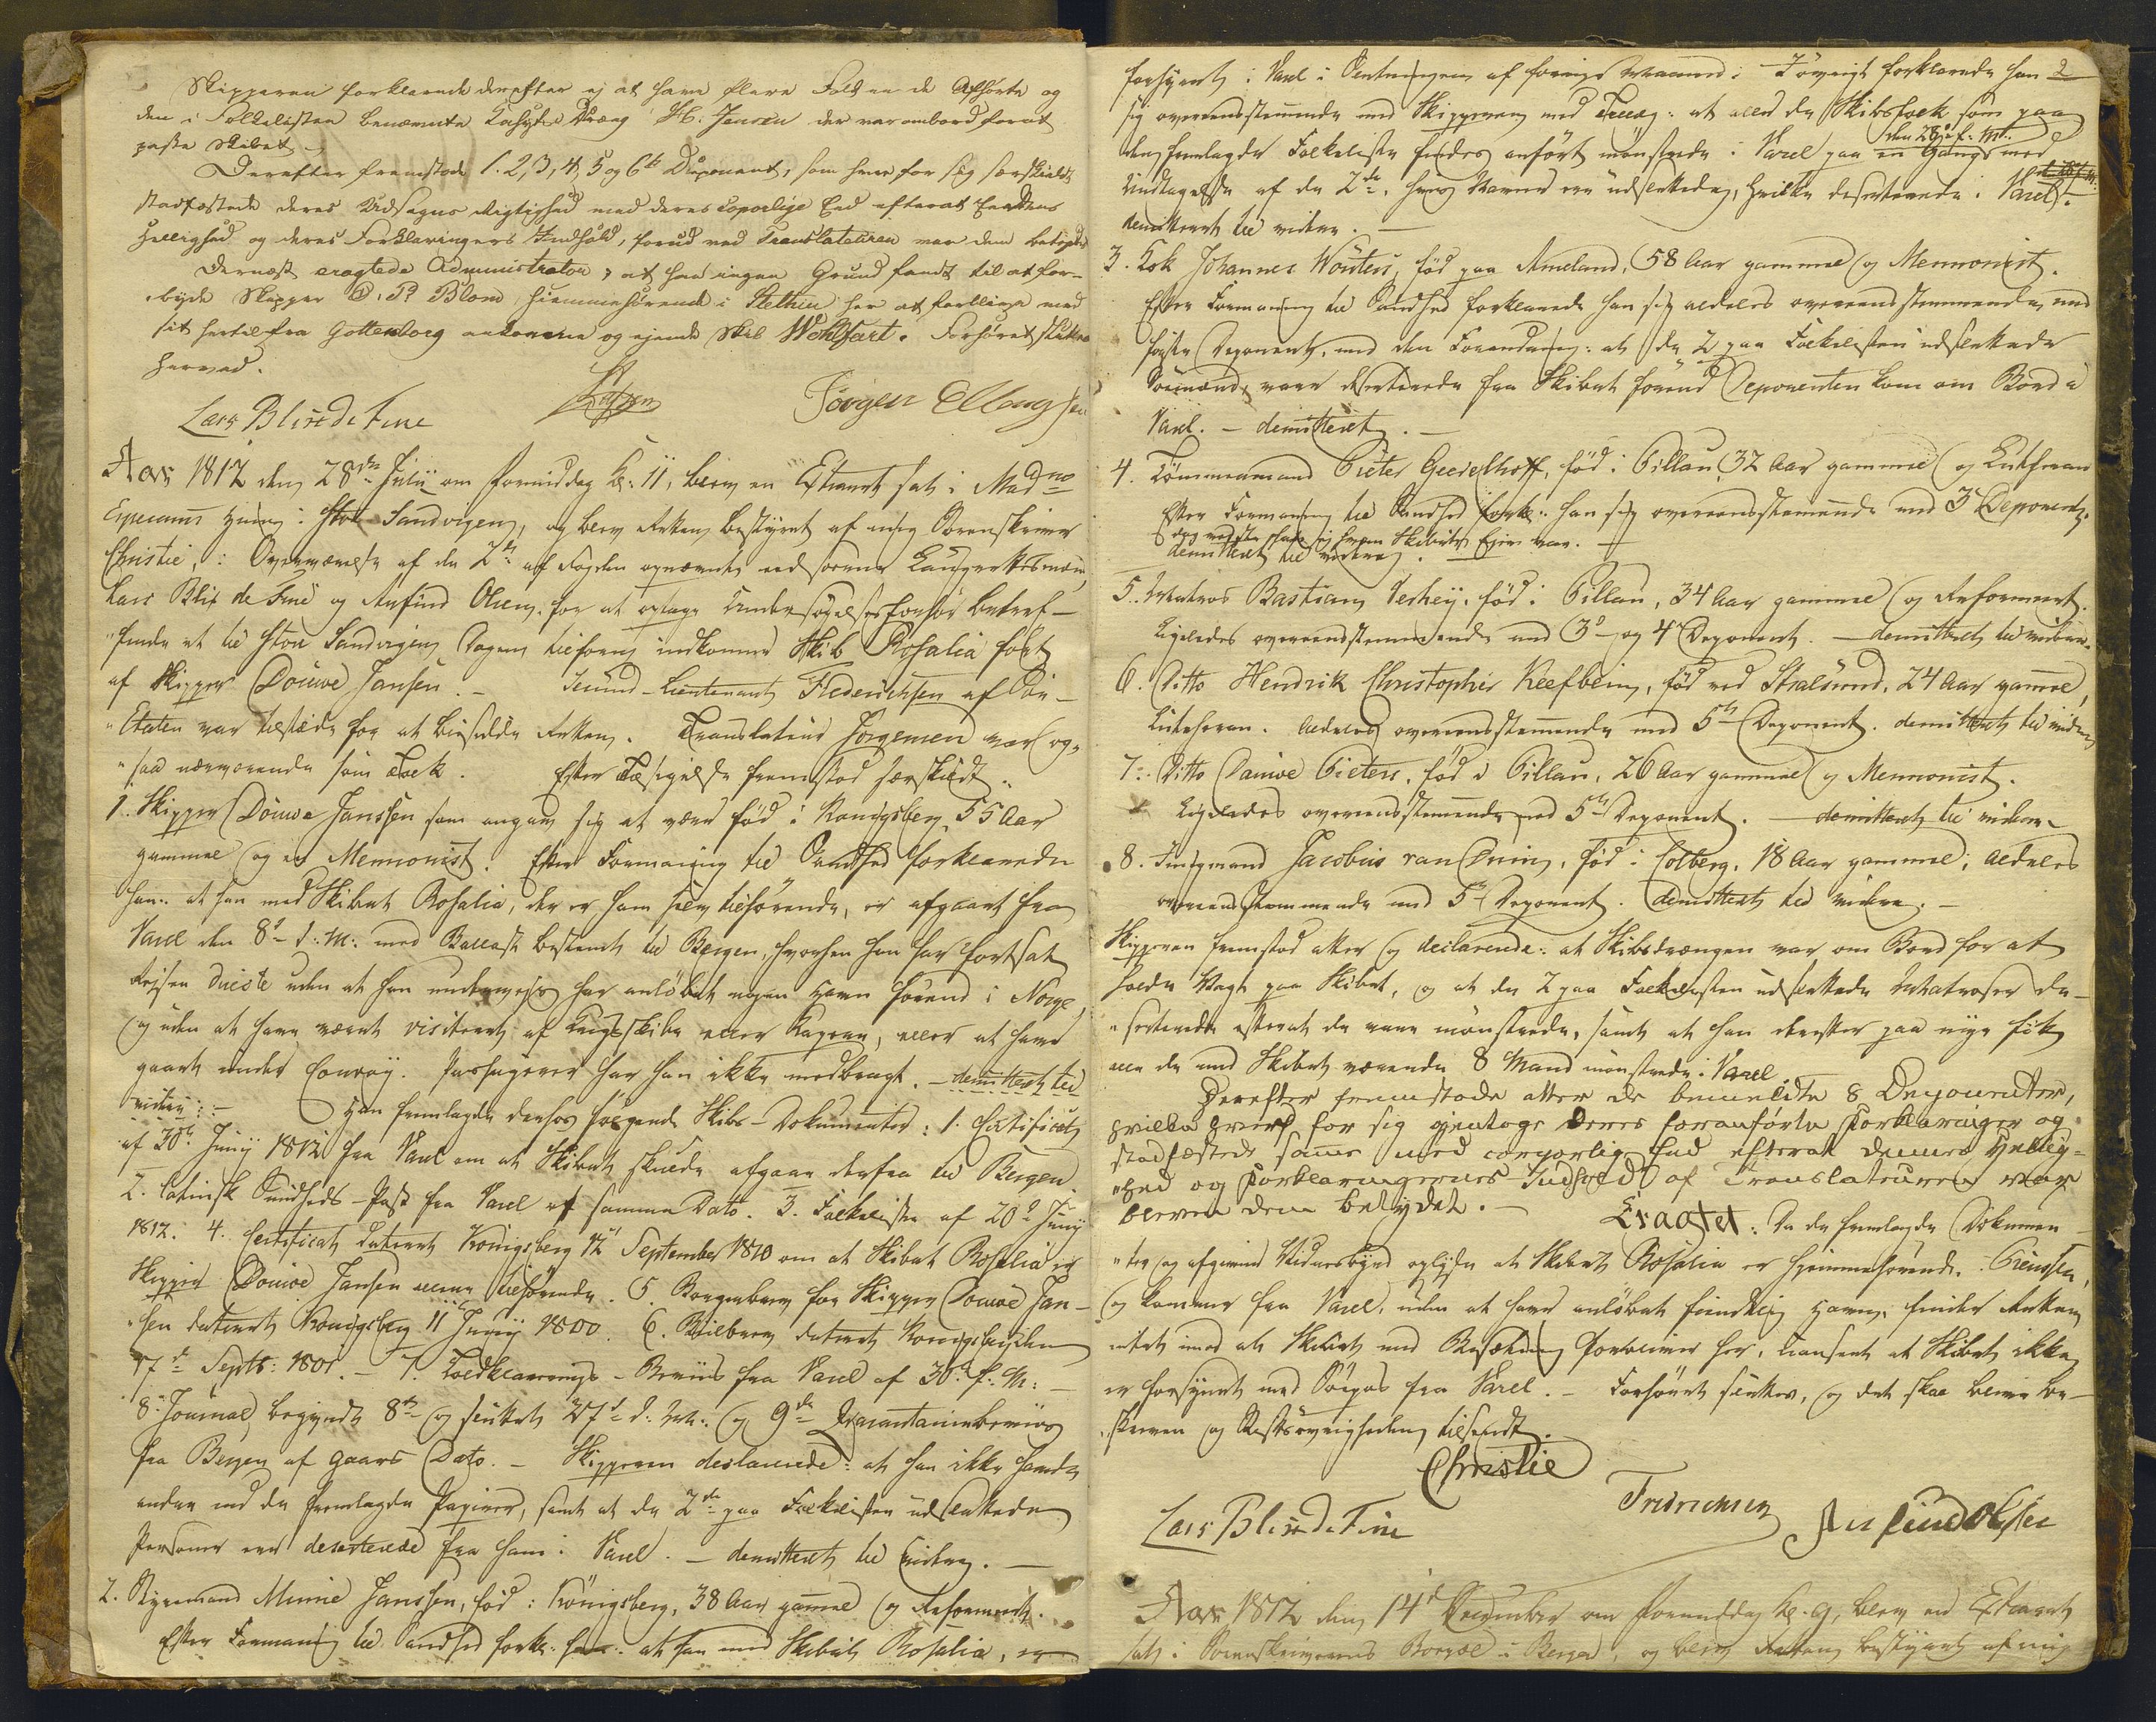 Skipperen forklarede derefter ej at have flere Folk en de Afhørte og
den i Folkelisten benævnte Kahyts Dreng H. Jensen der var ombord forat
passe Skibet. -
Derefter fremstode 1. 2, 3, 4, 5 og 6te Deponent, som hver for sig særskieldt
stadfæstede deres Udsagns Rigtighed med deres coporlige Eed efterat Eedens
Hellighed og deres Forklaringers Indhold, forud ved Translateuren var dem betydet
Dernæst eragtede Administrator, at han ingen Grund fandt til at for-
byde Skipper D. P. Blom, hiemmehørende i Stettin her at forblive med
sit hertil fra Gottenborg ankomne og ejende Skib Wohlfart. Forhøret sluttes
herved.
Lars Blix de Fine Jørgen Ellingsen
Aar 1812 den 28de Julii om Formiddag Kl: 11, blev en Extraret sat i Madme
Huus i Store Sandvigen, og blev Retten bestyret af mig Sorenskriver
Christie, i Overværelse af de 2de af Fogden opnævnte eedsvorne Laugrettesmænd,
Lars Blix de Fine og Anfind Olsen, for at optage Undersøgelsesforhør betref-
"fende et til Store Sandvigen Dagen tilforn indkomne Skib Rosalia ført
af Skipper Douwe Jansen. - Second-Lieutenant Frederichsen af Søe-
"Etaten var tilstede for at bivaane Retten. Translateur Jørgensen var og-
"saa nærværende som Tolk. Efter Tilsigelse fremstod særskildt.
1. Skipper Douwe Janssen som angav sig at være fød i Konigsberg, 55 Aar
gammel og er Mennonist. Efter Formaning til Sandhed forklarede
han: at han med Skibet Rosalia, der er ham selv tilhørende, er afgaaet fra
Varel den 8de d: M: med Ballast bestemt til Bergen, hvorhen han har fortsat
Reisen directe uden at han underveis har anløbet nogen Havn førend i Norge,
og uden at have været visiteret af Krigsskibe eller Kapere, eller at have
gaaet under Convoy. Passagerer har han ikke medbragt. - demitteret til
videre. - Han fremlagde derhos følgende Skibs-Dokumenter: 1. Certificat
af 30te Junij 1812 fra Varel om at Skibet skulde afgaae derfra til Bergen
2. latinsk Sundheds-Pass fra Varel af samme Dato. 3. Folkeliste af 20de Junij
1812. 4. Certificat dateret Königsberg 12 September 1810 om at Skibet Rosalia er
Skipper Douwe Jansen alene tilhørende. 5. Borgerbrev for Skipper Douwe Jan-
"sen dateret Konigsberg 11 Junij 1800. 6. Bielbrev dateret Konigsberg den
17de Septbr: 1801. - 7. Toldklarerings-Beviis fra Varel af 30te f: M: -
8. Journal, begyndt 8de og sluttet 27de d: M: og 9de Qvarantainebeviis
fra Bergen af Gaars Dato. - Skipperen declarerede: at han ikke havde
andre end de fremlagde Papirer, samt at de 2de paa Folkelisten udslettede
Personer ere deserterede fra ham i Varel. - demitteret til videre. -
2. Styrmand Minne Janssen, fød i Königsberg, 38 Aar gammel og Reformeert.
Efter Formaning til Sandhed forkl: han: at han med Skibet Rosalia, er
forhyret i Varel i Slutningen af forrige Maaned. I øvrigt forklarede han 2
sig overeensstemmende med Skipperen med Tillæg: at alle de Skibsfolk som paa
den 28de f. Mt.
den fremlagde Folkeliste findes anført mønstrede i Varel paa en Gang med
Undtagelse af de 2de, hvis Navne ere udslettede, hvilke deserterede i Varel.
demitteret til videre. -
3. Kok Johannes Wouters, fød paa Ameland, 58 Aar gammel og Mennonist.
Efter Formaning til Sandhed forklarede han sig aldeles overeensstemmende med
første Deponent, med den Forandring: at de 2 paa Folkelisten udslettede
Sømænd, vare deserterede fra Skibet førend Deponenten kom om Bord i
Varel. - demitteret. -
4. Tømmermand Pieter Geeselhoff, fød i Pillau, 32 Aar gammel og Luthersk
Efter Formaning til Sandhed forkl: han sig overeensstemmende med 3 Deponent.
dog vidste han ej hvem Skibets Ejer var. -
demitteret til videre.
5. Matros Bastian Verheij, fød i Pillau, 34 Aar gammel og Reformeert.
Ligeledes overeensstemmende med 3de og 4de Deponent. - demitteret til videre.
6. Ditto Hendrik Christopher Keefbein, fød ved Stralsund, 24 Aar gammel,
Lutheran. Aldeles overeensstemmende med 5te Deponent. demitteret til videre
7. Ditto Pieters, fød i Pillau, 26 Aar gammel og Mennonist.
Ligeledes overeensstemmende med 5te Deponent. - demitteret til videre.
8. Jungmand Jacobus van Duin, fød i Colberg, 18 Aar gammel, aldeles
overeensstemmende med 5te Deponent. demitteret til videre. -
Skipperen fremstod atter og declarerede: at Skibsdrengen var om Bord for at
holde Vagt paa Skibet, og at de 2 paa Folkelisten udslettede Matroser de-
"serterede efterat de vare mønstrede, samt at han derefter paa nye fik
alle de med Skibet værende 8 Mand mønstrede i Varel.
Derefter fremstode atter de bemeldte 8 Deponenter,
hvilke hver for sig gientoge deres foranførte Forklaringer og
stadfæstede samme med corporlig Eed efterat dennes Hellig-
"hed og Forklaringernes Indhold af Translateuren var
bleven dem betydet. - Eragtet: Da de fremlagde Dokumen-
"ter og afgivne Vidnesbyrd oplyse at Skibet Rosalia er hjemmehørende i Preussen,
og kommer fra Varel, uden at have anløbet fiendtlig Havn, finder Retten
intet imod at Skibet med Besætning forbliver her, uanseet at Skibet ikke
er forsynet med Søepas fra Varel. - Forhøret sluttes, og det skal blive be-
"skreven og Restsøvrigheden tilsendt.
Christie
Lars Blix de Fine Fredrichsen Anfind Olsen
Aar 1812 den 14de December om Formiddag Kl. 9, blev en Extraret
sat i Sorenskriverens Bopæl i Bergen, og blev Retten bestyret af mig